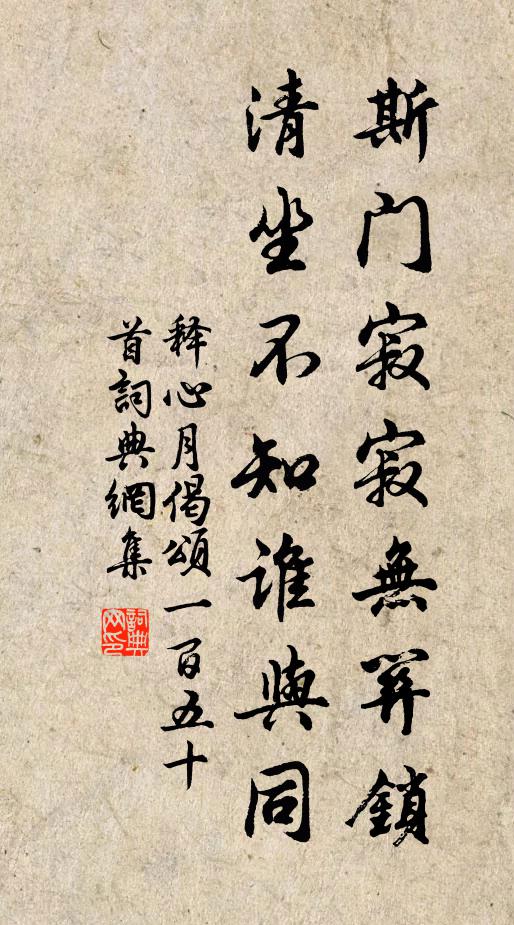 斯门寂寂無鎖
清坐不知誰與同
释心月偈頌一百五十
首詞典網集
詞典
网印